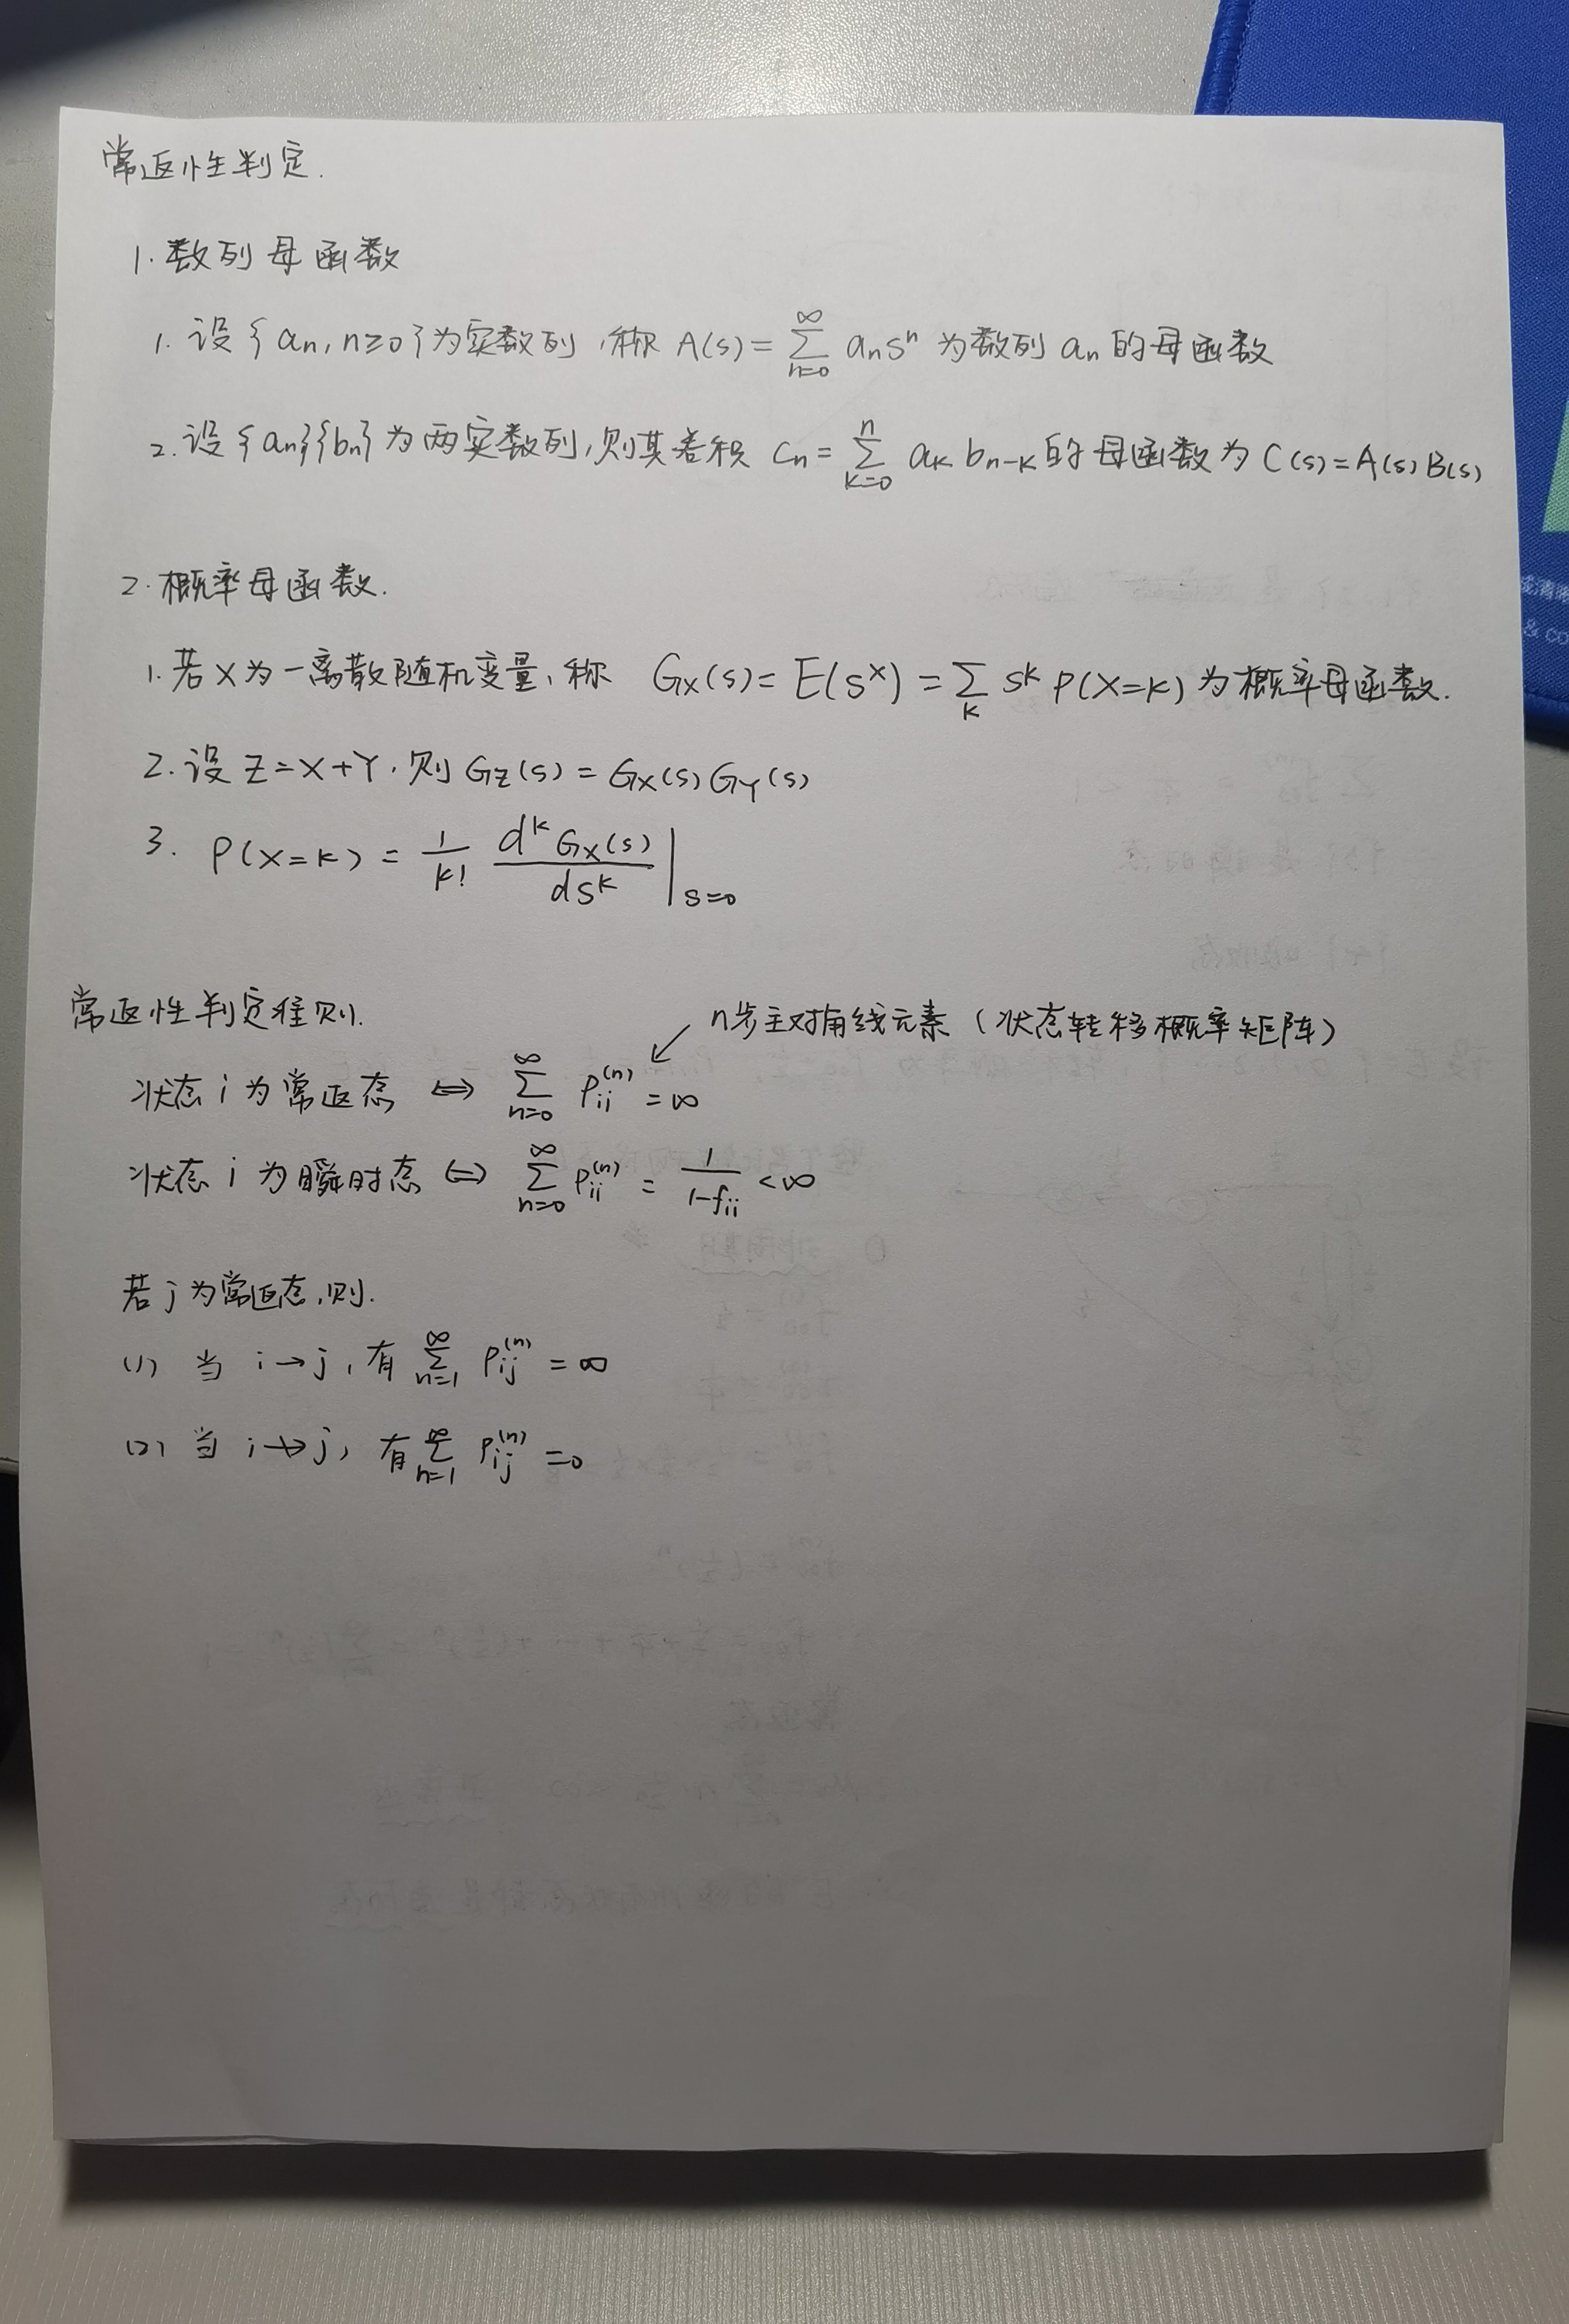 常返性判定.
1. 数列母函数
1. 设{an, n≥0}为实数列,称 A(s)=∑_{n=0}^{∞} aₙsⁿ 为数列 aₙ 的母函数
2. 设{aₙ}{bₙ}为两实数列,则其卷积 Cₙ=∑_{k=0}^{n} aₖ bₙ₋ₖ 的母函数为 C(s)=A(s)B(s)
2. 概率母函数.
1. 若X为一离散随机变量,称 Gₓ(s)=E(sˣ)=∑_{k} sᵏ P(X=k) 为概率母函数.
2. 设 Z=X+Y,则 G_Z(s)=G_X(s)G_Y(s)
3. P(X=k) = \frac{1}{k!} \frac{d^k G_X(s)}{ds^k}|_{s=0}
常返性判定准则.
n步主对角线元素(状态转移概率矩阵)
状态 i 为常返态 ⇔ ∑_{n=0}^{∞} P_{ii}^{(n)} = ∞
状态 i 为瞬时态 ⇔ ∑_{n=0}^{∞} P_{ii}^{(n)} = \frac{1}{1-f_{ii}} < ∞
若 j 为常返态,则.
(1) 当 i→j,有 ∑_{n=1}^{∞} P_{ij}^{(n)} = ∞
(2) 当 i↛j,有 ∑_{n=1}^{∞} P_{ij}^{(n)} = 0
& CO